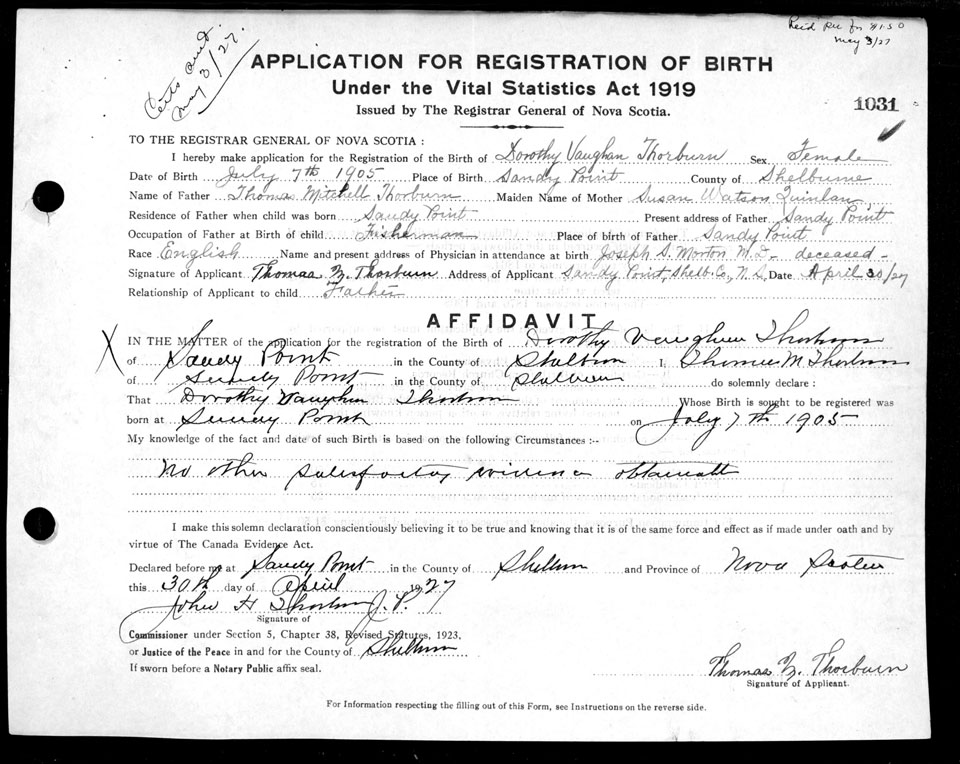 Rec'd for $1.50
May 3/27
Certs
May 3/27.
APPLICATION FOR REGISTRATION OF BIRTH
Under the Vital Statistics Act 1919
Issued by The Registrar General of Nova Scotia.
1031
TO THE REGISTRAR GENERAL OF NOVA SCOTIA :
I hereby make application for the Registration of the Birth of Dorothy Vaughan Thorburn Sex Female
Date of Birth July 7th 1905 Place of Birth Sandy Point County of Shelburne
Name of Father Thomas Mitchell Thorburn Maiden Name of Mother Susan Watson Quinlan
Residence of Father when child was born Sandy Point Present address of Father Sandy Point
Occupation of Father at Birth of child Fisherman Place of birth of Father Sandy Point
Race English Name and present address of Physician in attendance at birth Joseph S. Morton M.D. - deceased -
Signature of Applicant Thomas M. Thorburn Address of Applicant Sandy Point, Shelb. Co., N.S. Date April 30/27
Relationship of Applicant to child Father
AFFIDAVIT
X IN THE MATTER of the application for the registration of the Birth of Dorothy Vaughan Thorburn
of Sandy Point in the County of Shelburn I, Thomas M Thorburn
of Sandy Point in the County of Shelburn do solemnly declare :
That Dorothy Vaughan Thorburn Whose Birth is sought to be registered was
born at Sandy Point on July 7th 1905
My knowledge of the fact and date of such Birth is based on the following Circumstances :--
No other satisfactory evidence obtainable
I make this solemn declaration conscientiously believing it to be true and knowing that it is of the same force and effect as if made under oath and by
virtue of The Canada Evidence Act.
Declared before me at Sandy Point in the County of Shelburn and Province of Nova Scotia
this 30th day of April 1927
John H Thorburn J. P.
Signature of
Commissioner under Section 5, Chapter 38, Revised Statutes, 1923,
or Justice of the Peace in and for the County of Shelburn
If sworn before a Notary Public affix seal.
Thomas M. Thorburn
Signature of Applicant.
For Information respecting the filling out of this Form, see Instructions on the reverse side.